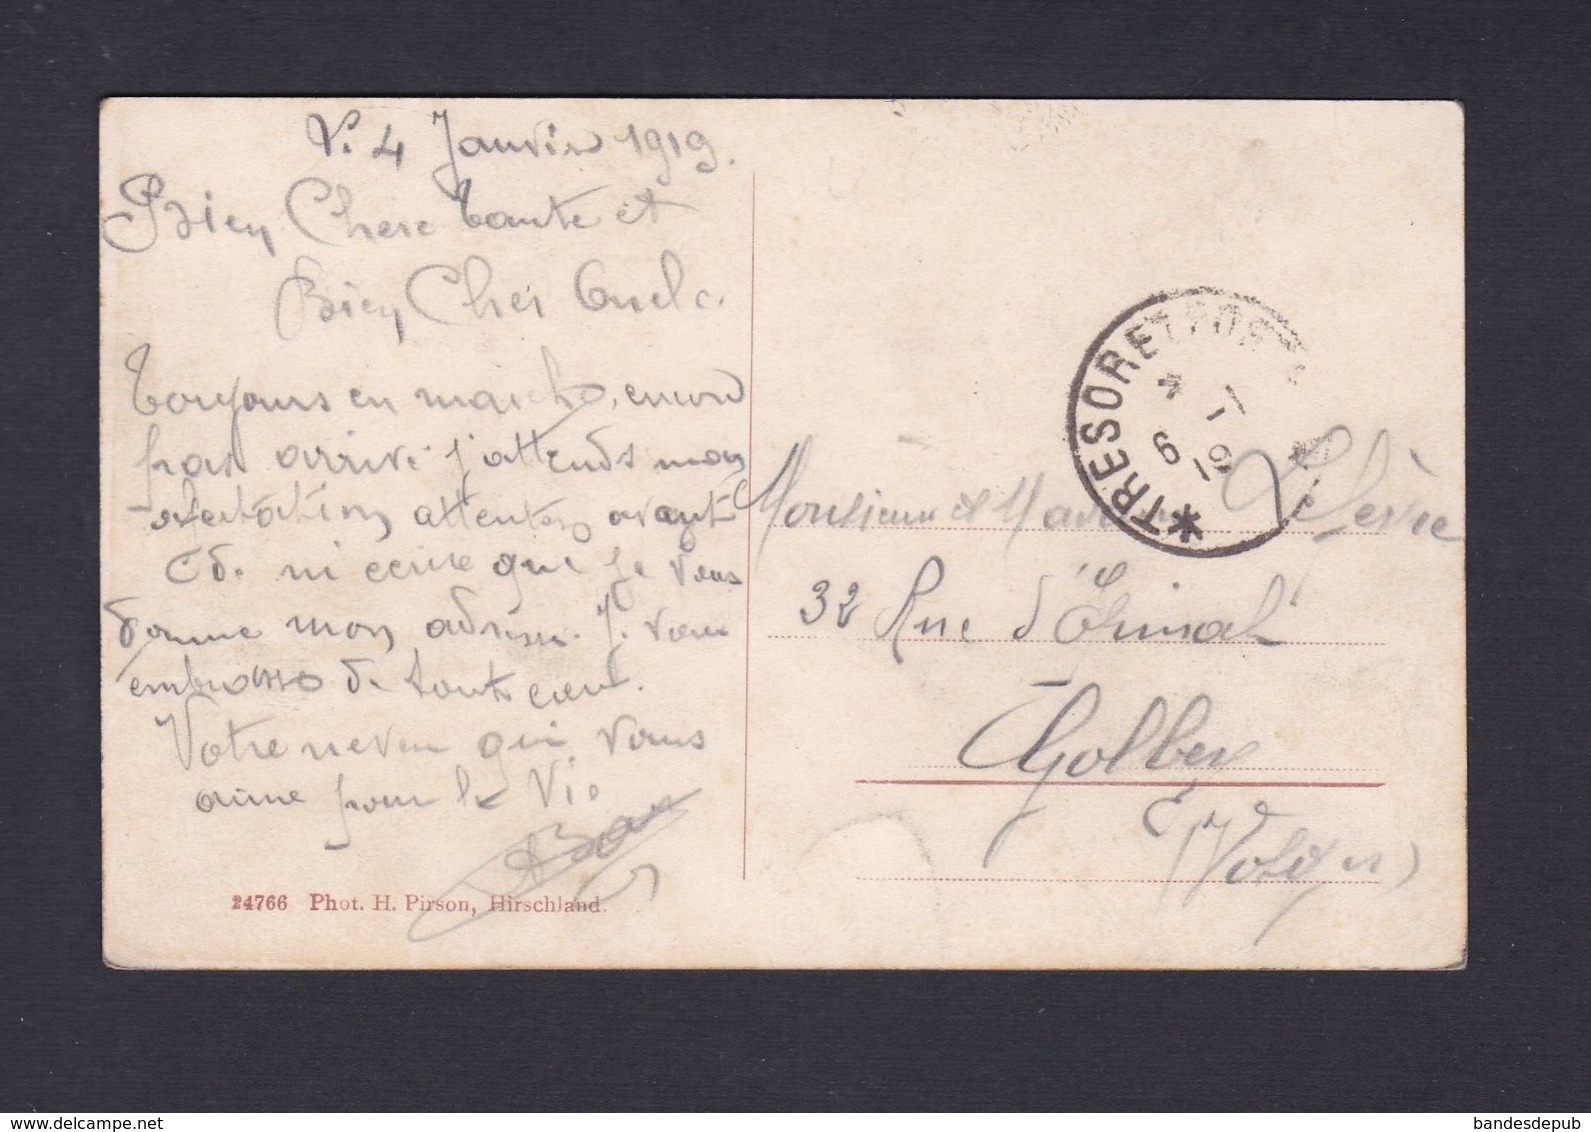 V. 4 Janvier 1919.
Bien Chere tante et
Bien Cher Oncle.
Toujours en marche, encore
pas arrivé j'attends mon
afectation attentez avant
de m'ecrire que je vous
donne mon adresse. Je vous
embrasse de tout cœur.
Votre neveu qui vous
aime pour la vie
24766 Phot. H. Pirson, Hirschland.
*TRESOR ET POSTES
6 1
19
Monsieur et Madame Lefèvre
32 Rue d'Epinal
Golbey
(Vosges)
delcampe.net
bandesdepub